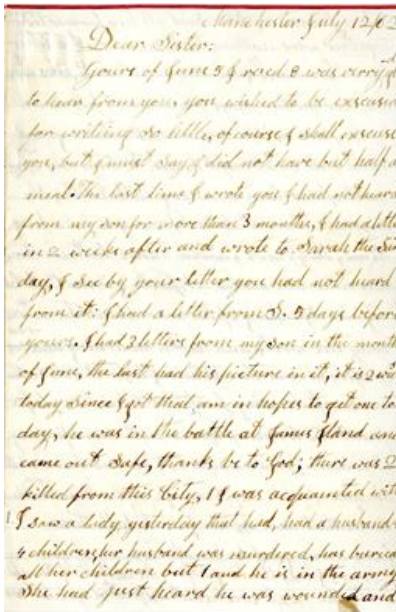 Manchester July 12/62
Dear Sister:
Yours of June 5 I recd 8 was verry
to hear from you, you wished to be excused
for writing so little, of course I shall excuse
you, but I must say I did not have but half a
meal. The last time I wrote you I had not heard
from my son for more than 3 months, I had a lette
in 2 weeks after and wrote to Sarah the
day, I see by your letter you had not heard
from it: I had a letter from S. 5 days before
yours. I had 3 letters from my son in the month
of June, the last had his picture in it, it is 2
today since I got that am in hopes to get one to
day, he was in the battle at James Iland and
came out safe, thanks be to God; there was 2
killed from this City, 1 I was acquainted with
I saw a lady yesterday that had, had a husband
4 children, her husband was murdered, has buried
all her children but 1 and he is in the army
She had just heard he was wounded and